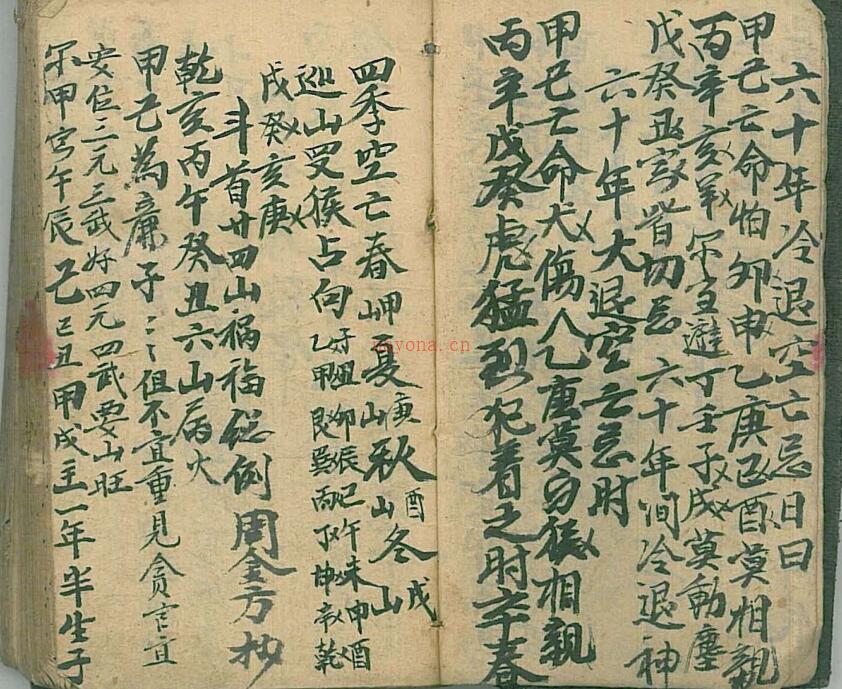 六十年冷退空亡忌日曰
甲己亡命怕卯申乙庚巳酉莫相親
丙辛亥羊不宜逢丁壬子戌莫動塵
戊癸丑寅皆切忌 六十年間冷退神
六十年大退空亡忌时
甲己亡命犬傷人乙庚莫与猴相親
丙辛戊癸虎猛烈犯着之时卒春
四季空亡春山夏庚山秋酉山冬戌山
巡山猴占向
丑卯辰巳午未申酉
乙甲艮巽丙丁坤辛乾
戊癸亥庚
斗首廿四山禍福総例 周金万抄
乾亥丙午癸丑六山属火
甲己為廉子〻但不宜重見貪官宜
安位三元三武好四元四武要山旺
不甲寅午辰己巳丑甲戌主一年半生子
yoyona.cn